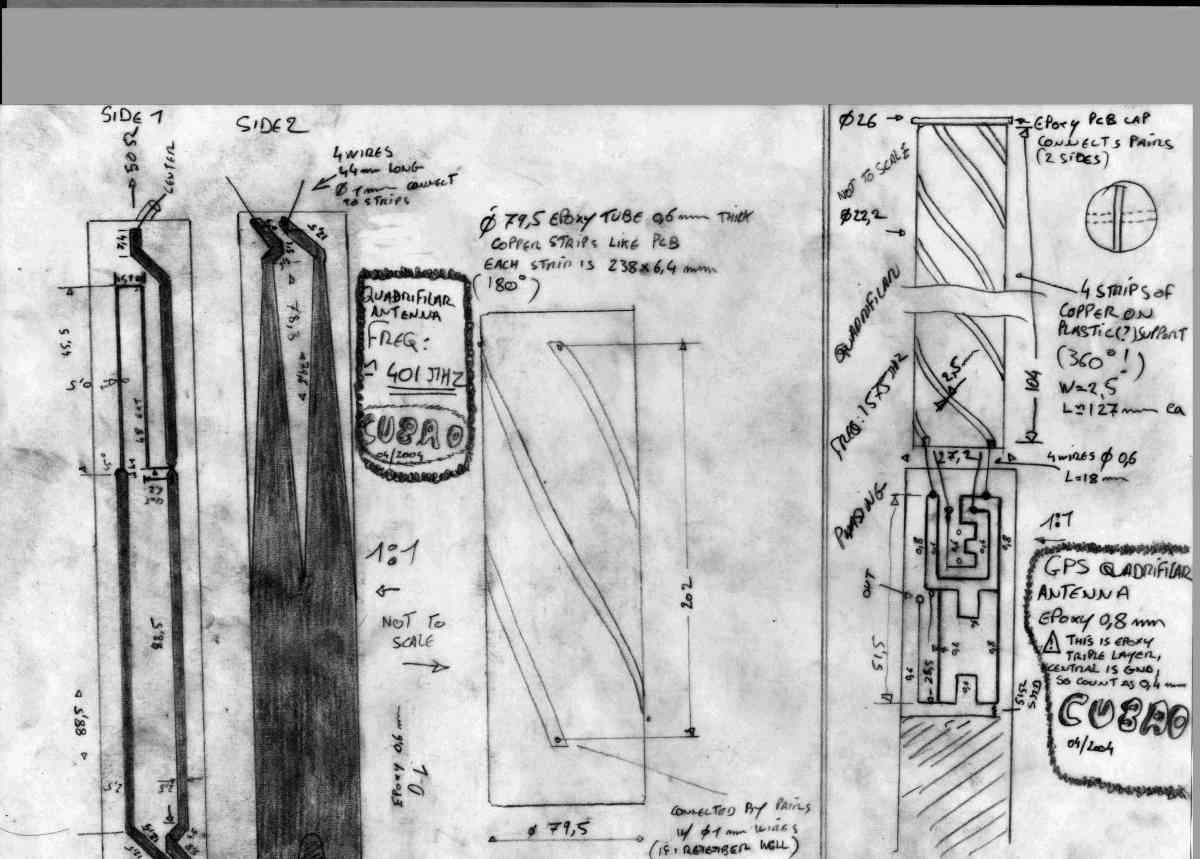 SIDE 1
50 Ω
CENTER
14,1
5,45
0,5
88,5
5,88
2,5
SIDE 2
4 WIRES
44mm LONG
Ø 1 mm CONNECT
TO STRIPS
78,8
QUADRIFILAR
ANTENNA
FREQ:
401 MHZ
CUBAO
04/2004
1:1
←
NOT TO
SCALE
→
EPOXY 0,6 mm
Ø 79,5 EPOXY TUBE 0,6 mm THICK
COPPER STRIPS LIKE PCB
EACH STRIP IS 238 x 6,4 mm
(180°)
202
Ø 79,5
CONNECTED BY PAIRS
W/ Ø 1 mm WIRES
(IF I REMEMBER WELL)
Ø26 →
NOT TO SCALE
Ø22,2
QUADRIFILAR
FREQ: 1575 MHZ
PHASING
OUT
51,5
EPOXY PCB CAP
CONNECTS PAIRS
(2 SIDES)
4 STRIPS OF
COPPER ON
PLASTIC(?) SUPPORT
(360°!)
W=2,5
L=127 mm EA
104
2,5
27,2
4 WIRES Ø 0,6
L=18 mm
0,8
0,6
0,6
0,6
0,8
0,6
28,5
0,6
0,8
1:1
←
GPS QUADRIFILAR
ANTENNA
EPOXY 0,8 mm
THIS IS EPOXY
TRIPLE LAYER,
CENTRAL IS GND,
SO COUNT AS 0,4 mm
CUBAO
04/2004